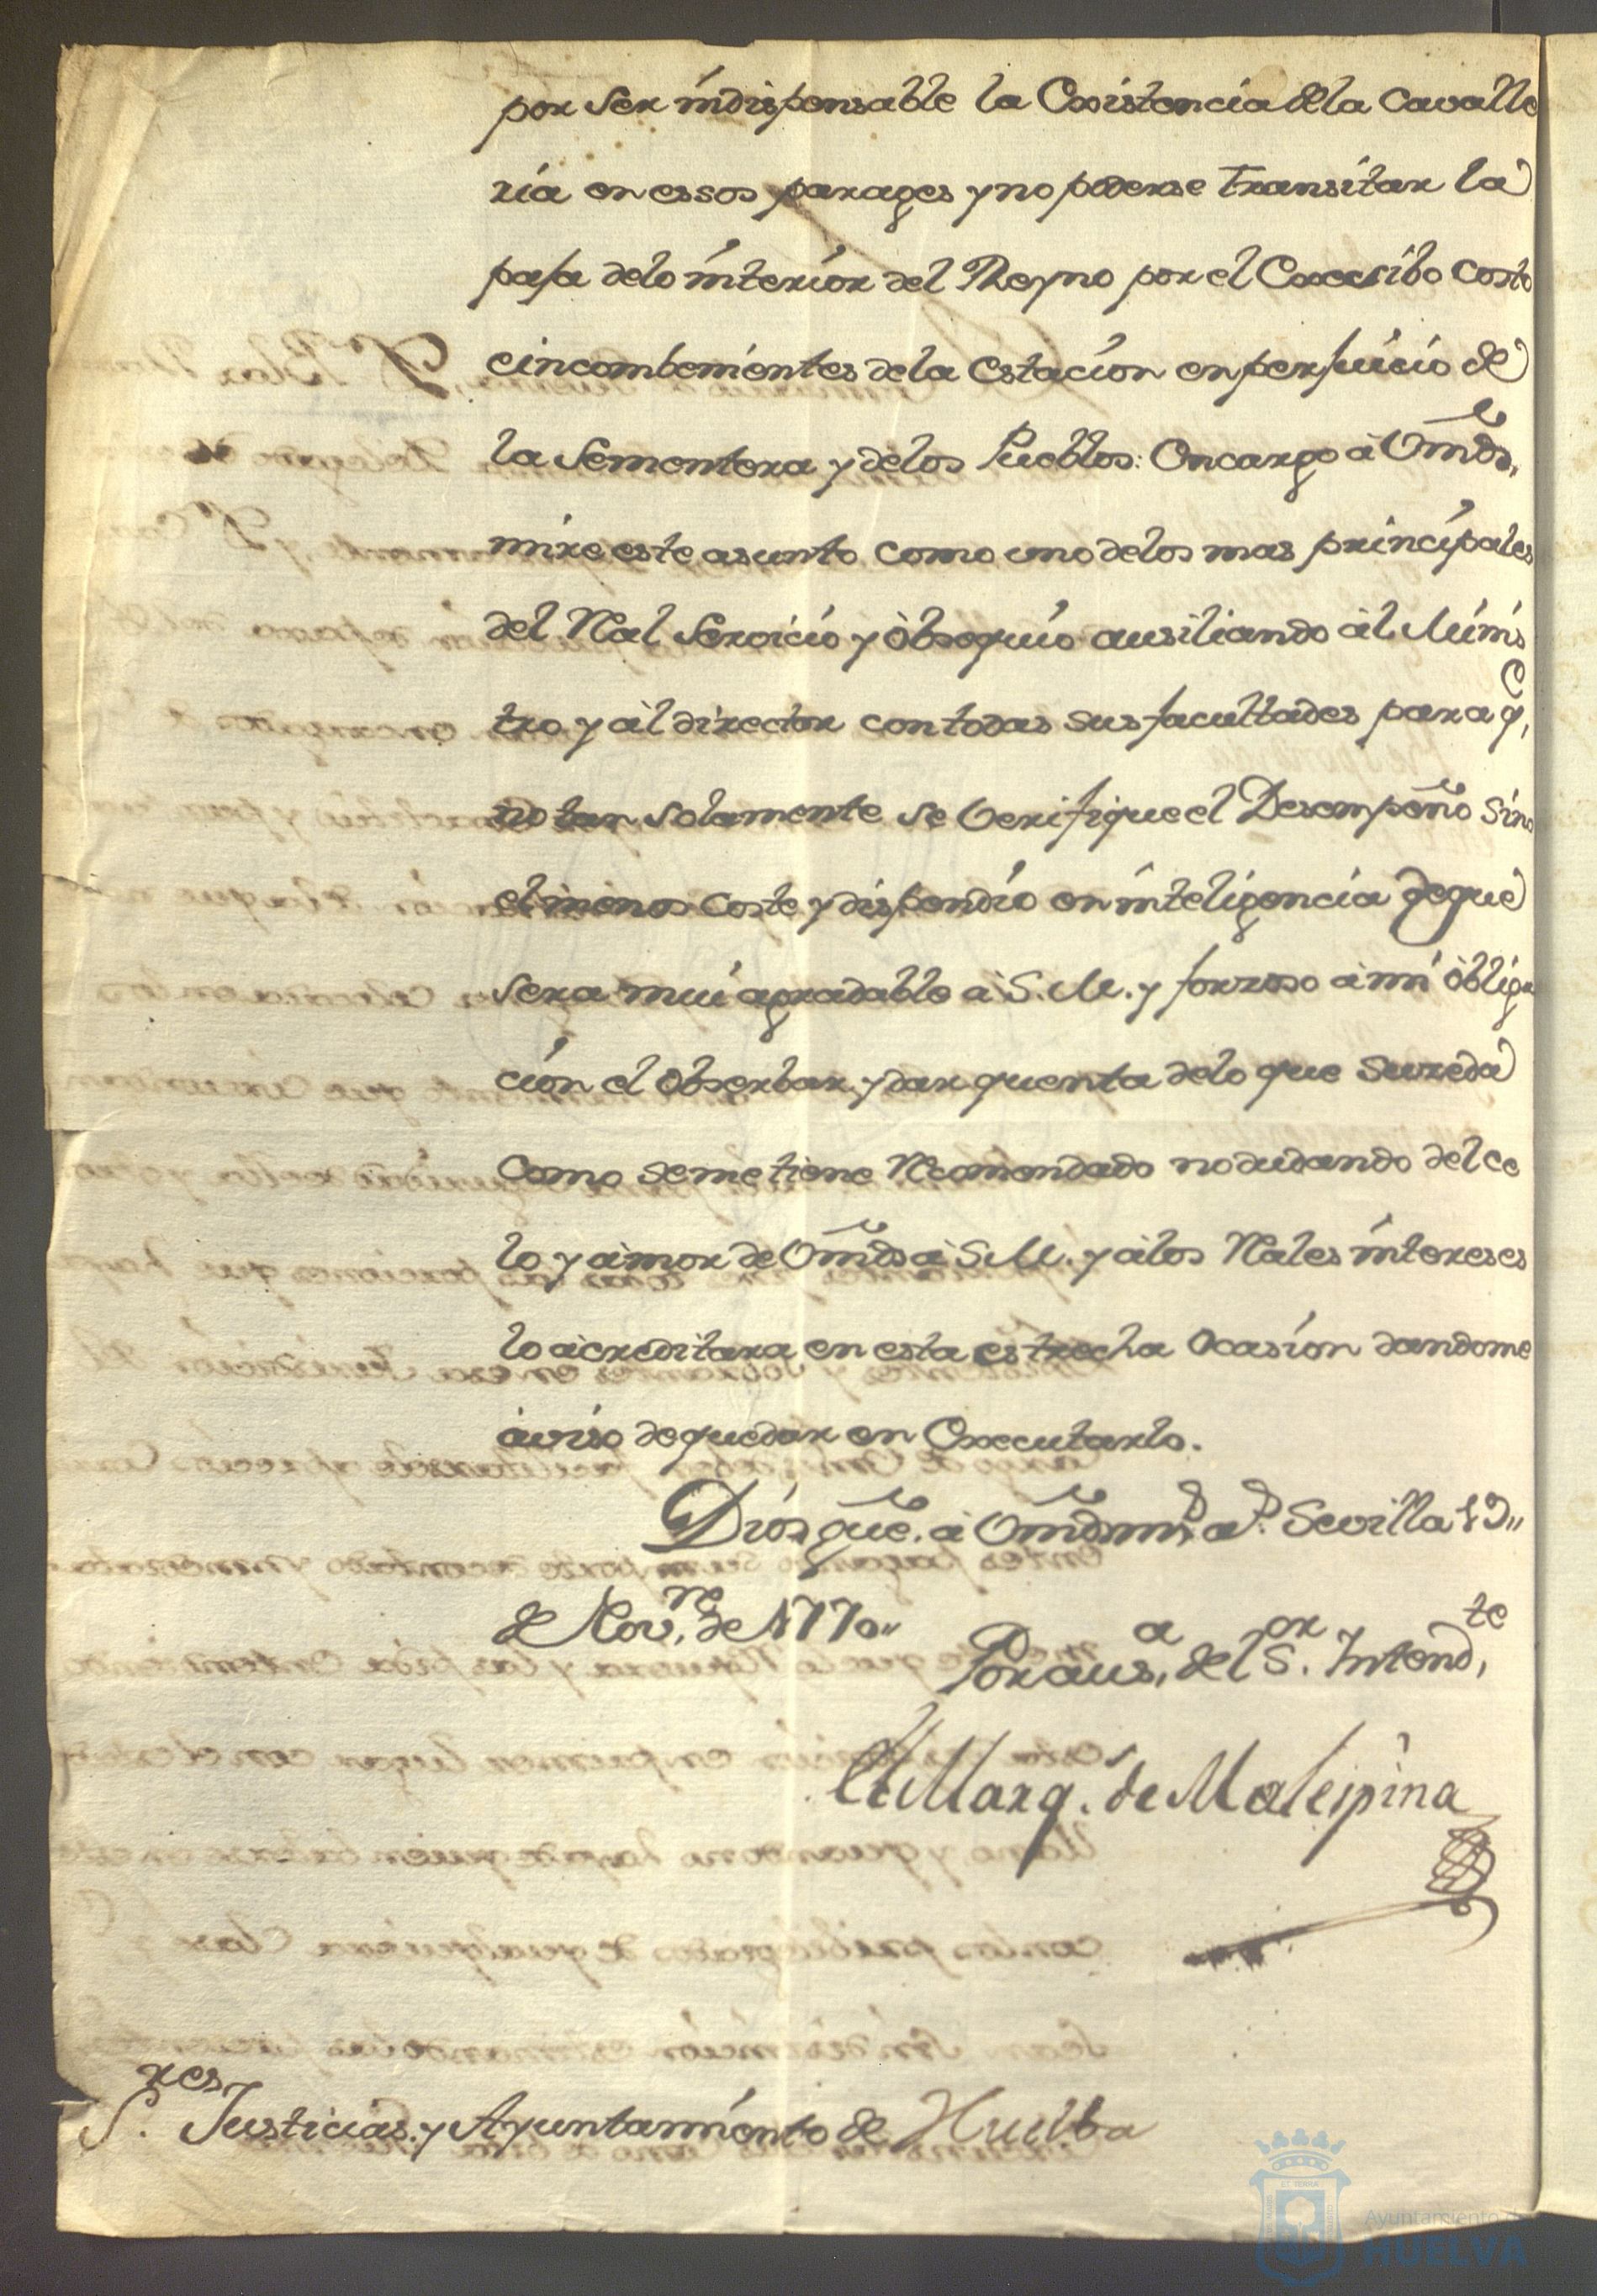 por ser indispensable la Existencia de la Cavalle
ria en essos parages y no poderse transitar la
pafa de lo interior del Reyno por el Excesibo costo
e incombenientes de la estacion en perjuicio de
la Sementera y de los Pueblos: Encargo à Vmds,
mire este asunto como uno de los mas principales
del Ral Servicio y òbsequio ausiliando àl Minis
tro y àl director con todas sus facultades para q,e
no tan solamente se verifique el Desempeño sino
el menos coste y dispendio en inteligencia de que
sera mui agradable à S.M. y forzoso à mi òbliga
cion el obserbar y dar quenta de lo que suceda
como se me tiene Recomendado no dudando del ce
lo y àmor de Vmds à S.M. y à los Rales intereses
lo àcreditara en esta estrecha ocasion dandome
àviso de quedar en Executarlo.
Dios gue. à Vmds ms. as. Sevilla 19,,
de Nov,re de 1770,,
Por aus,a del S.or Intend,te
El Marq.s de Malespina
S.res Justicias y Ayuntamiento de Huelba
Ayuntamiento de
HUELVA